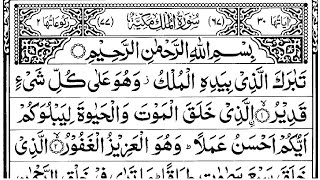 اٰیَاتُهَا ٣٠ (٦٧) سُوْرَةُ الْمُلْكِ مَكِّیَّةٌ (٧٧) رُكُوْعَاتُهَا ٢
بِسْمِ اللّٰهِ الرَّحْمٰنِ الرَّحِیْمِ
تَبٰرَكَ الَّذِیْ بِیَدِهِ الْمُلْكُ ز وَهُوَ عَلٰی كُلِّ شَیْءٍ
قَدِیْرُ ۙ۝١ ۨالَّذِیْ خَلَقَ الْمَوْتَ وَالْحَیٰوةَ لِیَبْلُوَكُمْ
اَیُّكُمْ اَحْسَنُ عَمَلًا ؕ وَهُوَ الْعَزِیْزُ الْغَفُوْرُ ۙ۝٢ الَّذِیْ
خَلَقَ سَبْعَ سَمٰوٰتٍ طِبَاقًا ؕ مَا تَرٰی فِیْ خَلْقِ الرَّحْمٰنِ